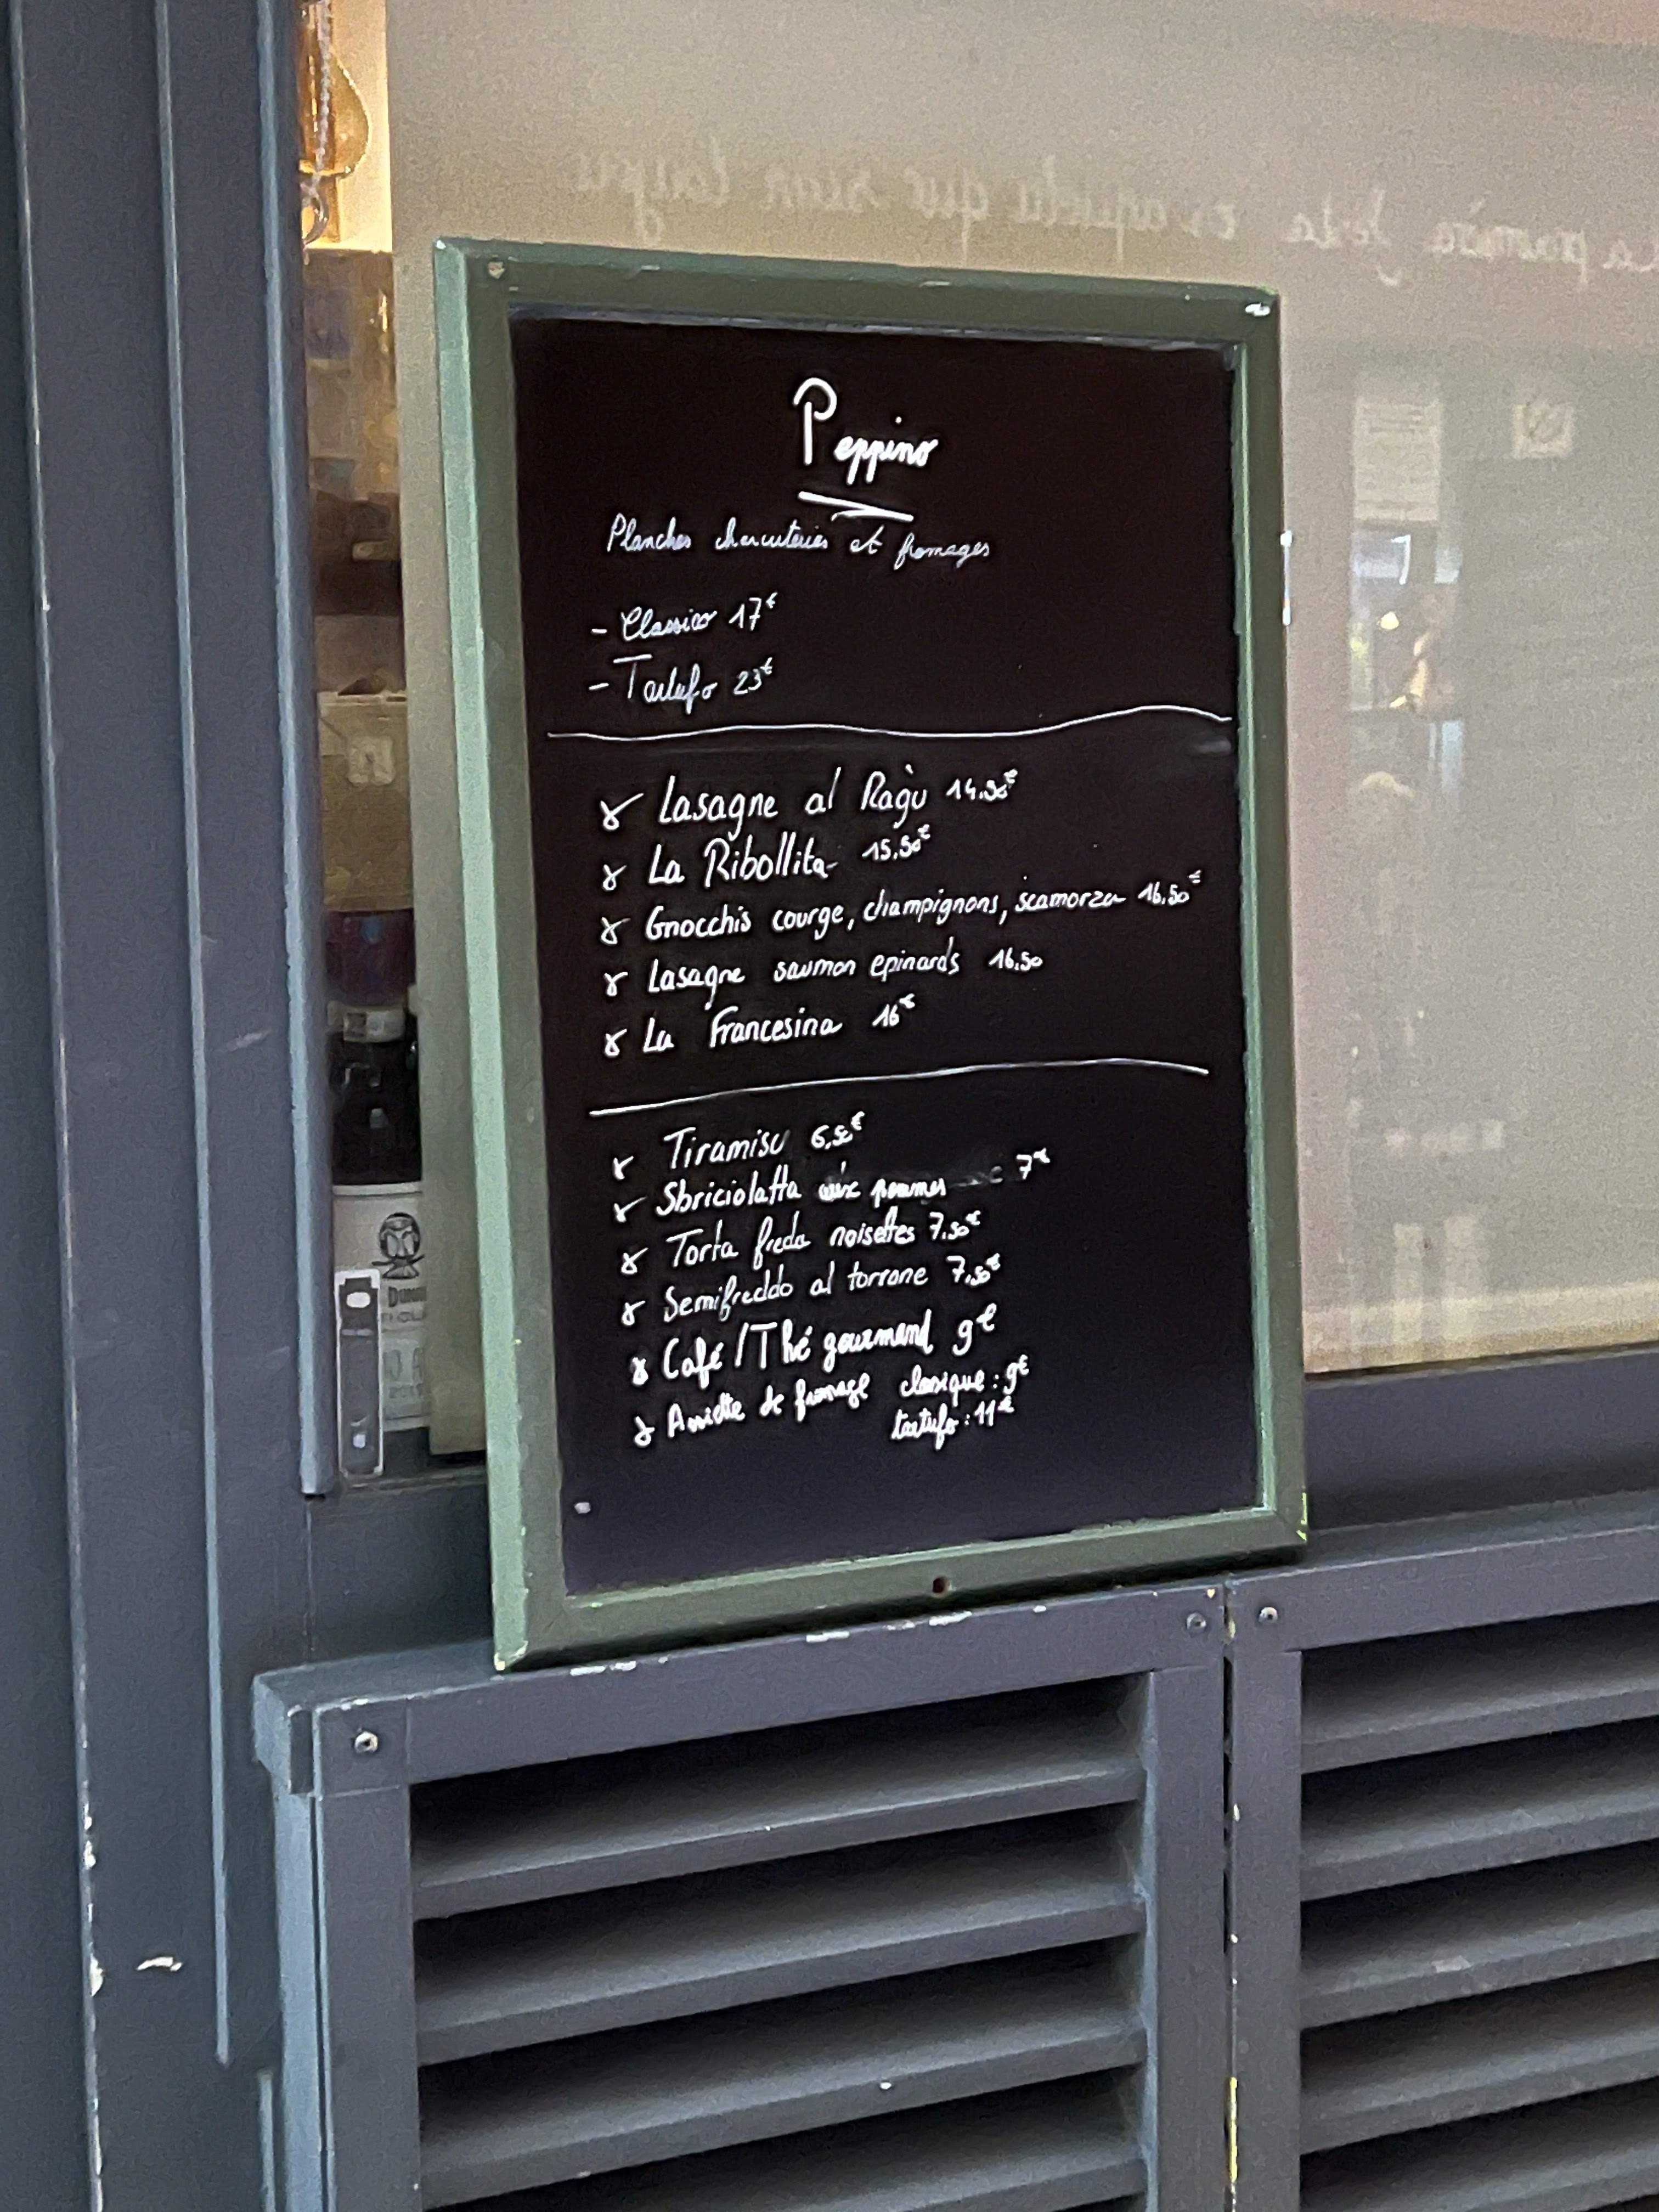 Peppino
Planches charcuteries et fromages
- Classico 17€
- Tartufo 23€
Lasagne al Ragù 14.90€
La Ribollita 15.50€
Gnocchis courge, champignons, scamorza 16.50€
Lasagne saumon epinards 16.50
La Francesina 16€
Tiramisu 6.50€
Sbriciolatta aux pommes 7€
Torta freda noisettes 7.50€
Semifreddo al torrone 7.50€
Café/Thé gourmand 9€
Assiette de fromage classique : 9€
tartufo : 11€